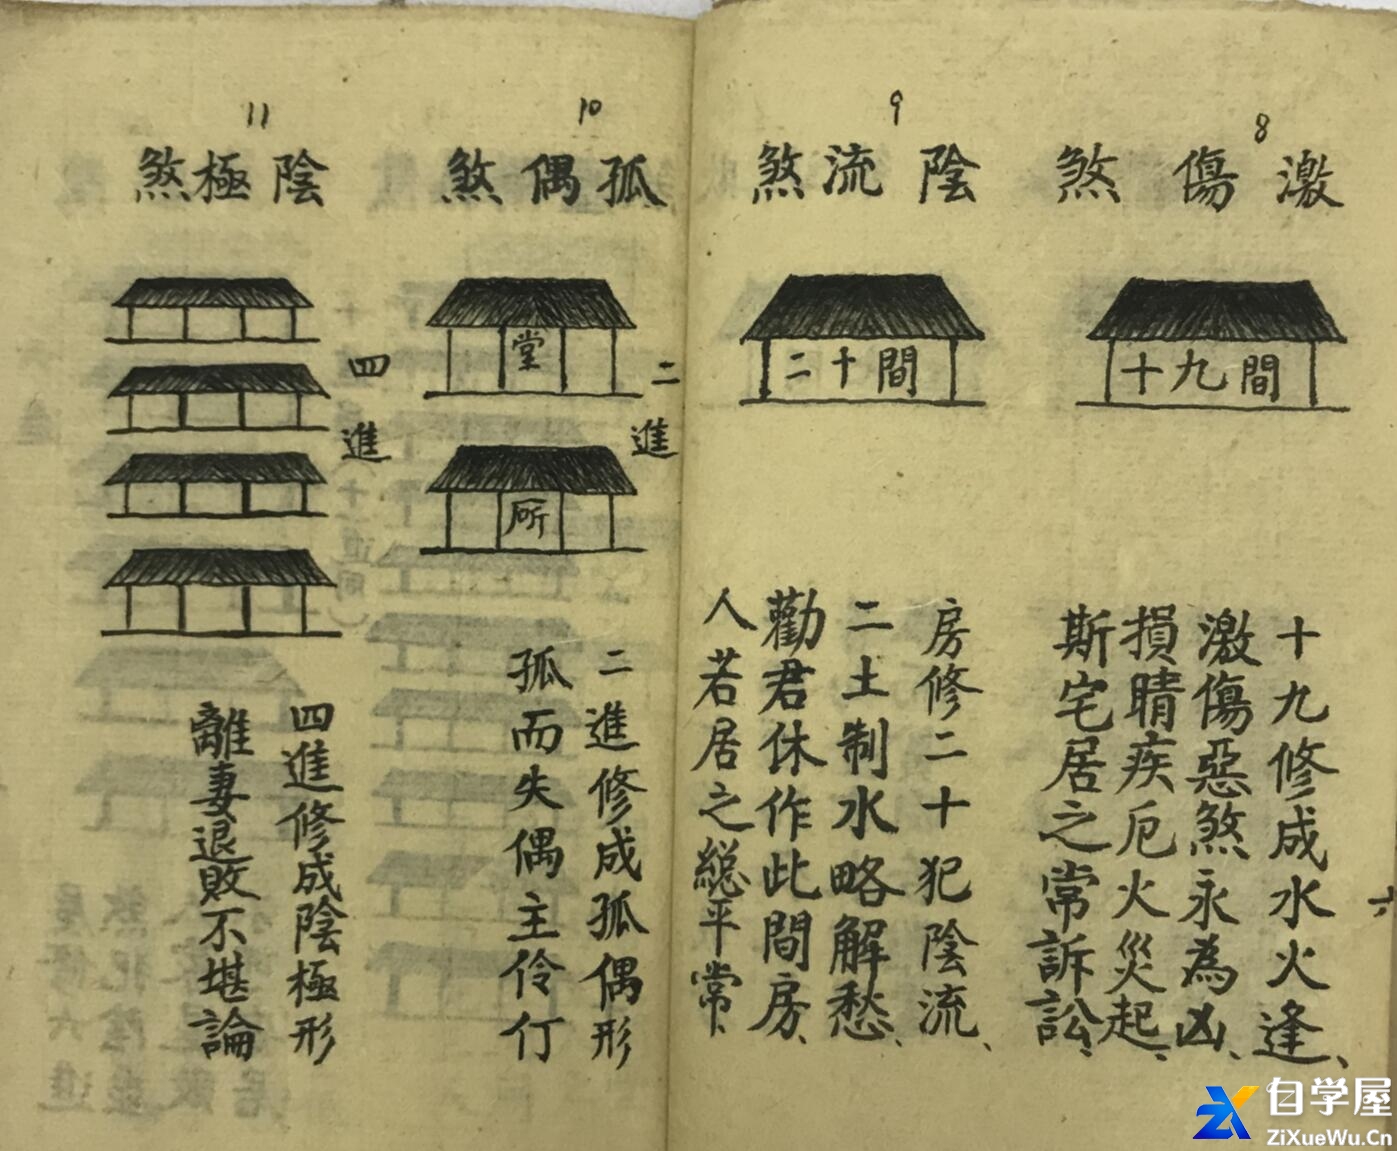 8
激傷煞
十九間
十九修成水火逢、
激傷惡煞永為凶、
損睛疾厄火災起、
斯宅居之常訴訟、
六
9
陰流煞
二十間
房修二十犯陰流、
二土制水略解愁、
勸君休作此間房、
人若居之総平常、
10
孤偶煞
二進
堂
所
二進修成孤偶形
孤而失偶主伶仃
11
陰極煞
四進
四進修成陰極形
離妻退敗不堪論
自学屋
ZiXueWu.Cn